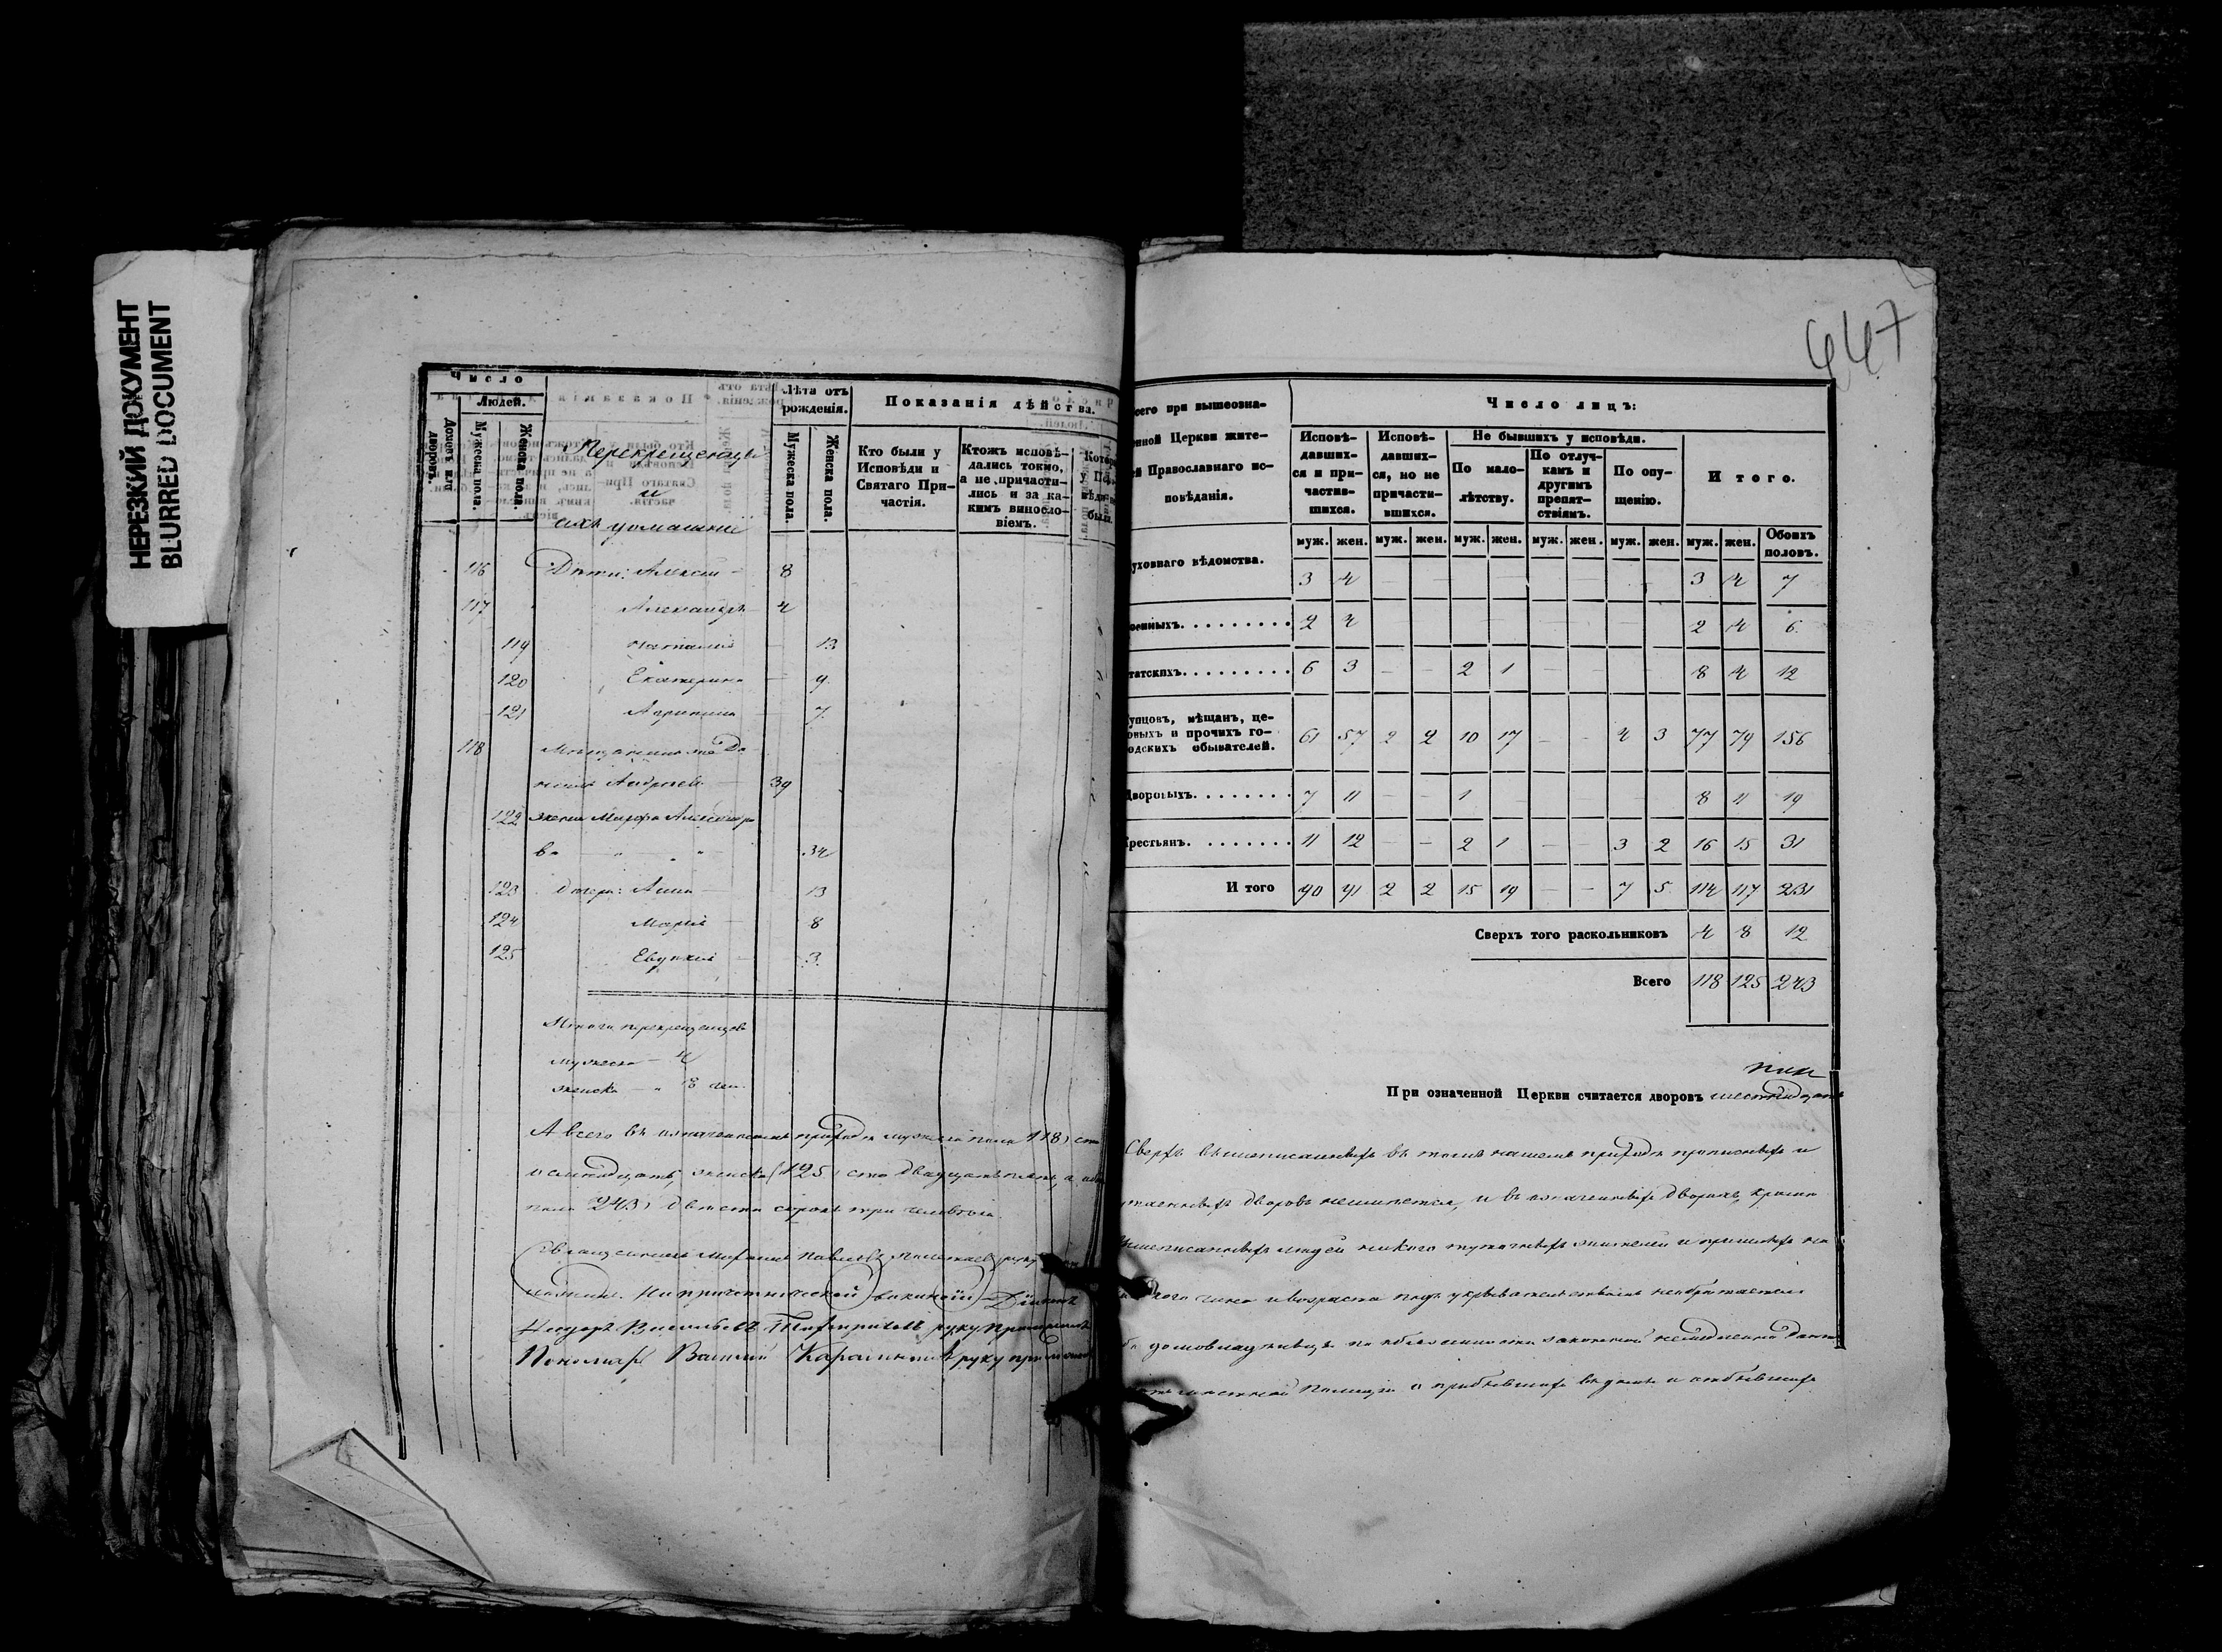 НЕРЕЗКИЙ ДОКУМЕНТ
BLURRED DOCUMENT
Число
Людей.
Домовъ или дворовъ.
Мужеска пола.
Женска пола.
Перекрещенцы
и
ихъ домашнiи
Лѣта отъ рожденія.
Мужеска пола.
Женска пола.
Показанія дѣйства.
Кто были у Исповѣди и Святаго Причастія.
Ктожъ исповѣдались токмо, а не причастились и за какимъ винословіемъ.
116 Дѣти: Алексѣй 8
117 Александръ 4
119 Наталія 13
120 Екатерина 9
121 Агрипина 7
118 Мѣщанинъ
Андреевъ 39
122 жена Марфа Александро
ва 34
123 дочери: Анна 13
124 Марія 8
125 Евдокія 3
Итого перекрещенцовъ
мужеска — 4
женска — 8 чел.
А всего въ означенномъ приходѣ мужеска пола 118) сто
осмнадцать, женска (125) сто двадцать пять, а обоего
пола 243) двести сорокъ три человѣка.
Священникъ Павловъ руку
На причетнической ваканціи Діаконъ
Васильевъ руку приложилъ
Пономарь Василій руку приложилъ
447
сего при вышеозна-
нной Церкви жите-
й Православнаго ис-
повѣданія.
Число лицъ:
Исповѣдавшихся и причастившихся.
Исповѣдавшихся, но не причастившихся.
Не бывшихъ у исповѣди.
По малолѣтству.
По отлучкамъ и другимъ препятствіямъ.
По опущенію.
Итого.
муж. жен. муж. жен. муж. жен. муж. жен. муж. жен. муж. жен. Обоихъ половъ.
уховнаго вѣдомства. 3 4 — — — — — — 3 4 7
оенныхъ. 2 4 2 4 6
татскихъ. 6 3 — — 2 1 — — 8 4 12
упцовъ, мѣщанъ, це-
овыхъ и прочихъ го-
одскихъ обывателей. 61 57 2 2 10 17 — — 4 3 77 79 156
Дворовыхъ. 7 11 — — 1 8 11 19
Крестьянъ. 11 12 — — 2 1 — — 3 2 16 15 31
И того 90 91 2 2 15 19 — — 7 5 114 117 231
Сверхъ того раскольниковъ 4 8 12
Всего 118 125 243
При означенной Церкви считается дворовъ шестнадцать
Сверхъ вышеписанныхъ въ томъ нашемъ приходѣ прописныхъ и
утаенныхъ дворовъ неимѣется, и въ означенныхъ дворахъ, кромѣ
вышеписанныхъ людей никого тутошныхъ жителей и пришлыхъ
кого чина и возраста подъ укрывательствомъ необрѣтается
домовладѣльцы по обязанности законной
Полиціи о прибывшихъ въ домы и отбывшихъ